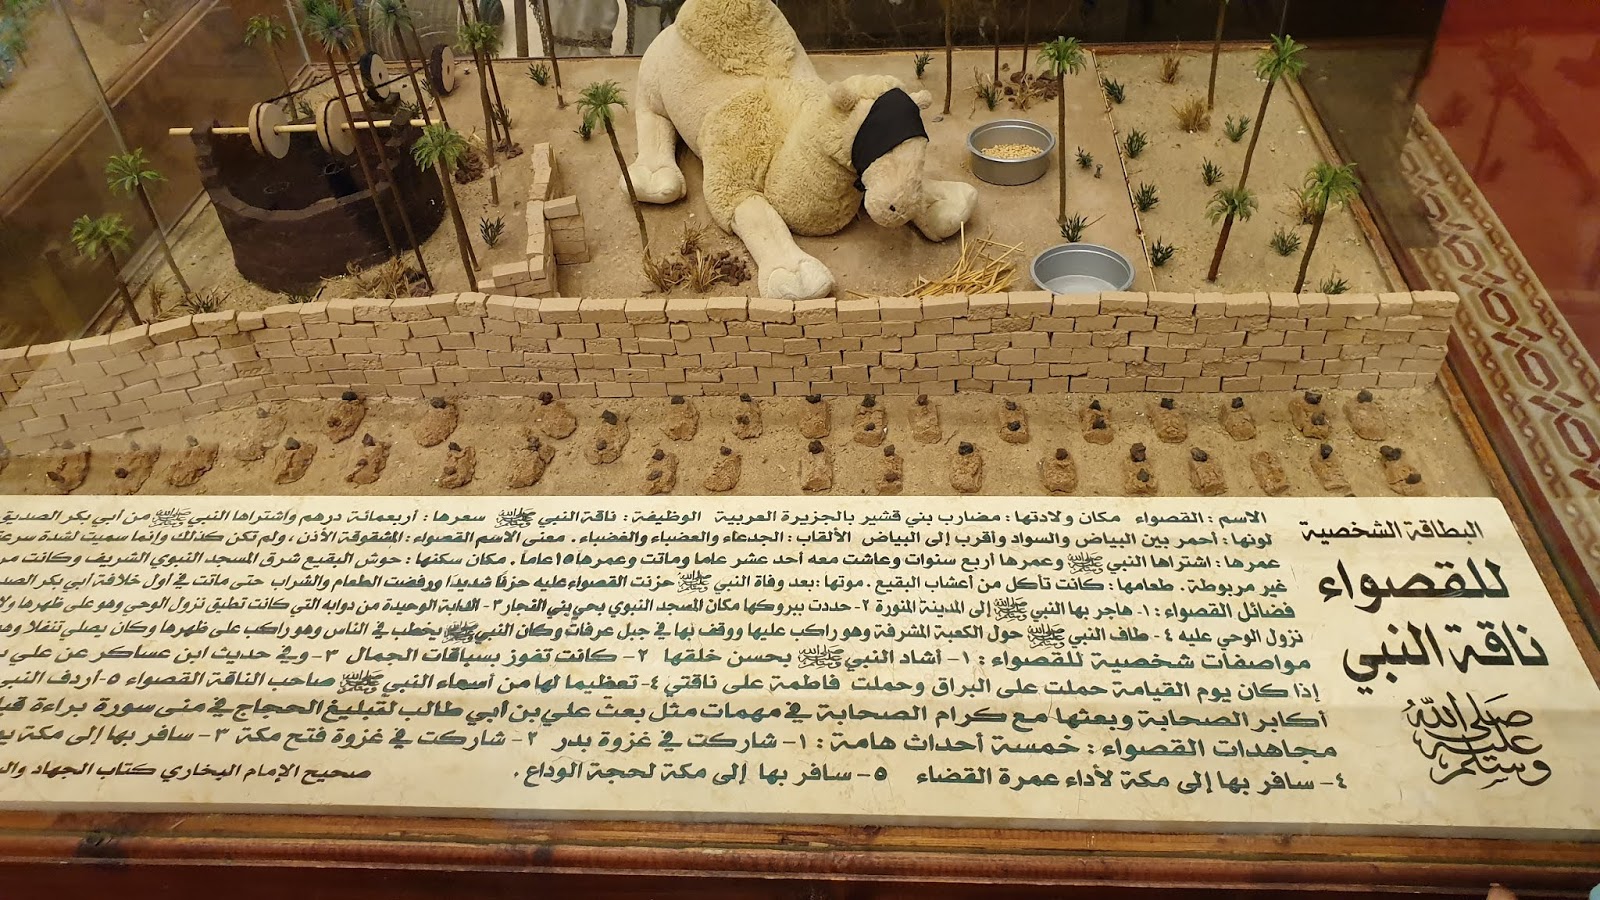 البطاقة الشخصية
للقصواء
ناقة النبي
صلى الله عليه وسلم
الاسم : القصواء مكان ولادتها : مضارب بني قشير بالجزيرة العربية الوظيفة : ناقة النبي ﷺ سعرها : أربعمائة درهم واشتراها النبي ﷺ من أبي بكر الصديق
لونها : أحمر بين البياض والسواد وأقرب إلى البياض الألقاب : الجدعاء والعضباء والغضباء . معنى الاسم القصواء : المشقوقة الأذن ، ولم تكن كذلك وإنما سميت لشدة سرعة
عمرها : اشتراها النبي ﷺ وعمرها أربع سنوات وعاشت معه أحد عشر عاما وماتت وعمرها ١٥ عاما . مكان سكنها : حوش البقيع شرق المسجد النبوي الشريف وكانت
غير مربوطة . طعامها : كانت تأكل من أعشاب البقيع . موتها : بعد وفاة النبي ﷺ حزنت القصواء عليه حزنا شديدا ورفضت الطعام والشراب حتى ماتت في أول خلافة أبي بكر
فضائل القصواء : ١- هاجر بها النبي ﷺ إلى المدينة المنورة ٢- حددت ببروكها مكان المسجد النبوي بحي بني النجار ٣- الدابة الوحيدة من دوابه التي كانت تطيق نزول الوحي وهو على ظهرها
نزول الوحي عليه ٤- طاف النبي ﷺ حول الكعبة المشرفة وهو راكب عليها ووقف بها في جبل عرفات وكان النبي ﷺ يخطب في الناس وهو راكب على ظهرها وكان يصلي تنفلا
مواصفات شخصية للقصواء : ١- أشاد النبي ﷺ بحسن خلقها ٢- كانت تفوز بسباقات الجمال ٣- وفي حديث ابن عساكر عن علي
إذا كان يوم القيامة حملت على البراق وحملت فاطمة على ناقتي ٤- تعظيما لها من أسماء النبي ﷺ صاحب الناقة القصواء ٥- أردف النبي
أكابر الصحابة وبعثها مع كرام الصحابة في مهمات مثل بعث علي بن أبي طالب لتبليغ الحجاج في منى سورة براءة
مجاهدات القصواء : خمسة أحداث هامة : ١- شاركت في غزوة بدر ٢- شاركت في غزوة فتح مكة ٣- سافر بها إلى مكة
٤- سافر بها إلى مكة لأداء عمرة القضاء ٥- سافر بها إلى مكة لحجة الوداع . صحيح الإمام البخاري كتاب الجهاد